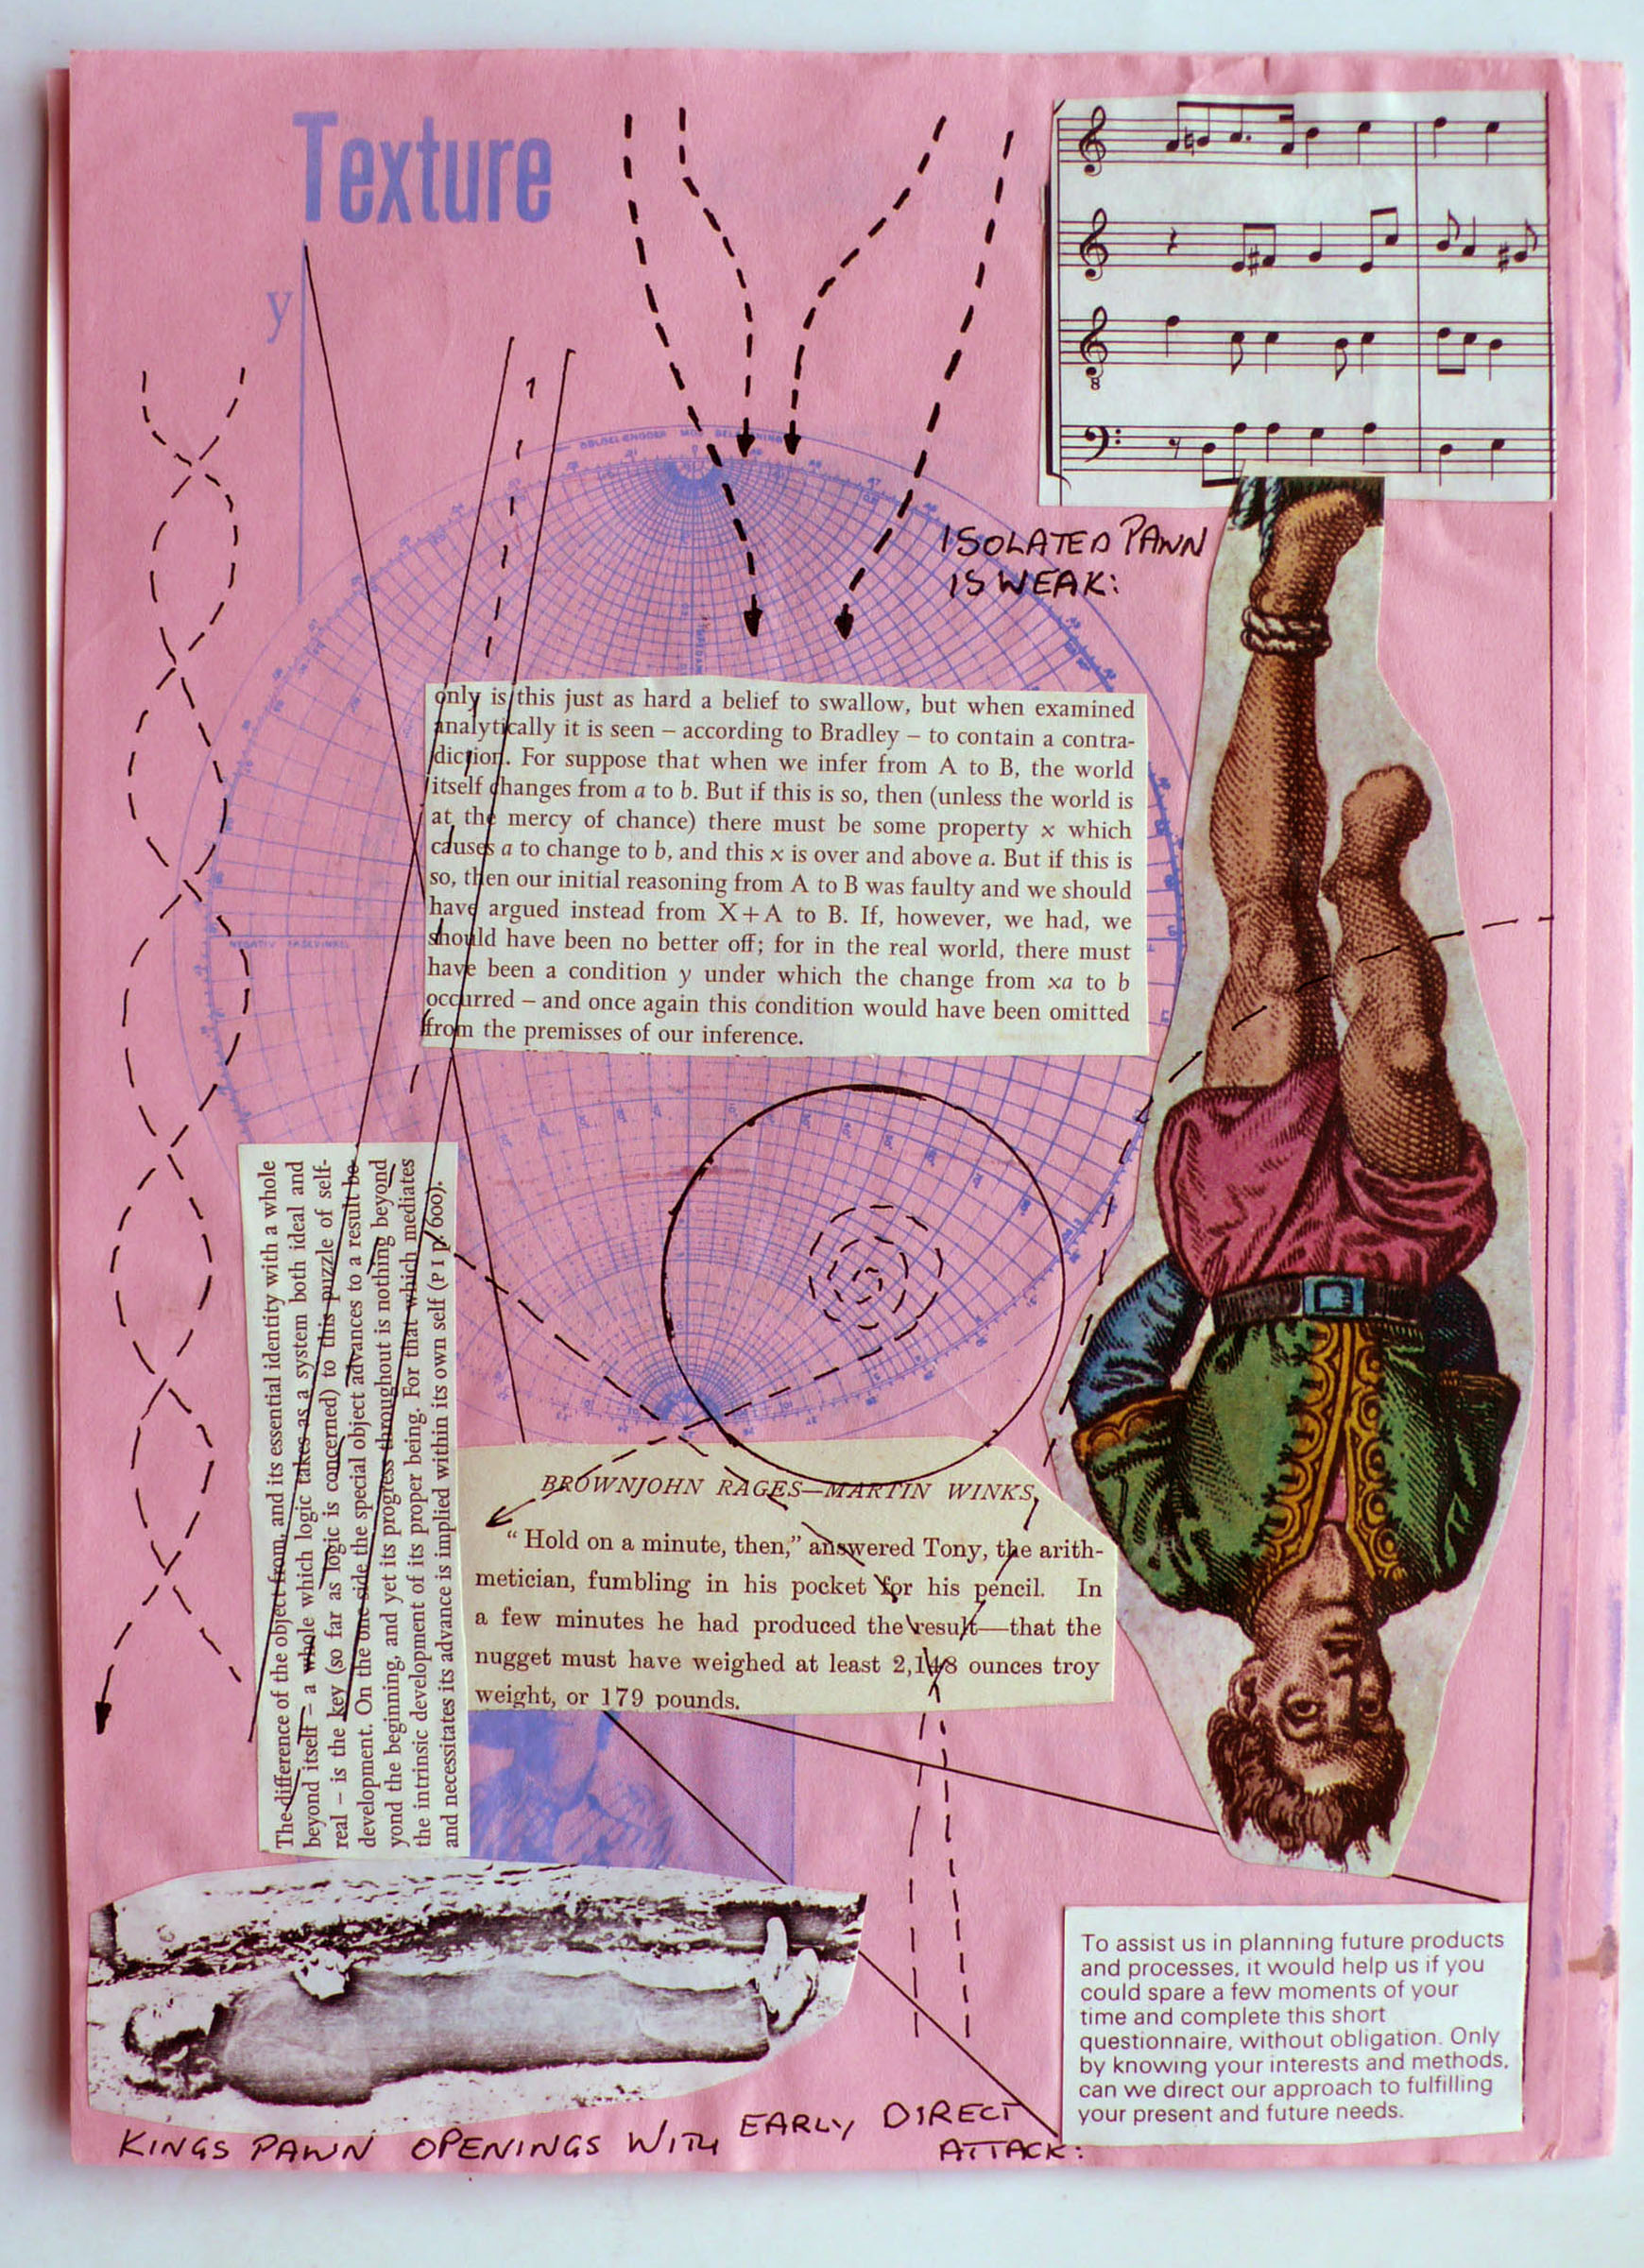 Texture
y
ISOLATED PAWN
IS WEAK:
only is this just as hard a belief to swallow, but when examined
analytically it is seen – according to Bradley – to contain a contra-
diction. For suppose that when we infer from A to B, the world
itself changes from a to b. But if this is so, then (unless the world is
at the mercy of chance) there must be some property x which
causes a to change to b, and this x is over and above a. But if this is
so, then our initial reasoning from A to B was faulty and we should
have argued instead from X+A to B. If, however, we had, we
should have been no better off; for in the real world, there must
have been a condition y under which the change from xa to b
occurred – and once again this condition would have been omitted
from the premisses of our inference.
The difference of the object from, and its essential identity with a whole
beyond itself – a whole which logic takes as a system both ideal and
real – is the key (so far as logic is concerned) to this puzzle of self-
development. On the one side the special object advances to a result be-
yond the beginning, and yet its progress throughout is nothing beyond
the intrinsic development of its proper being. For that which mediates
and necessitates its advance is implied within its own self (PI p. 600).
BROWNJOHN RAGES—MARTIN WINKS
“Hold on a minute, then,” answered Tony, the arith-
metician, fumbling in his pocket for his pencil. In
a few minutes he had produced the result—that the
nugget must have weighed at least 2,148 ounces troy
weight, or 179 pounds.
To assist us in planning future products
and processes, it would help us if you
could spare a few moments of your
time and complete this short
questionnaire, without obligation. Only
by knowing your interests and methods,
can we direct our approach to fulfilling
your present and future needs.
KINGS PAWN OPENINGS WITH EARLY DIRECT
ATTACK: